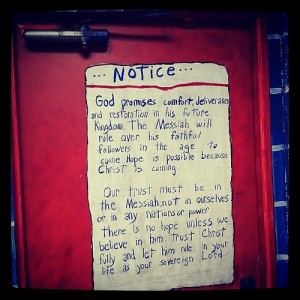 ... NOTICE ...
God promises comfort, deliverance
and restoration in his future
Kingdom. The Messiah will
rule over his faithful
followers in the age to
come. Hope is possible because
Christ is coming
Our trust must be in
the Messiah, not in ourselves
or in any nations or power
There is no hope unless we
believe in him. Trust Christ
fully and let him rule in your
life as your sovereign Lord